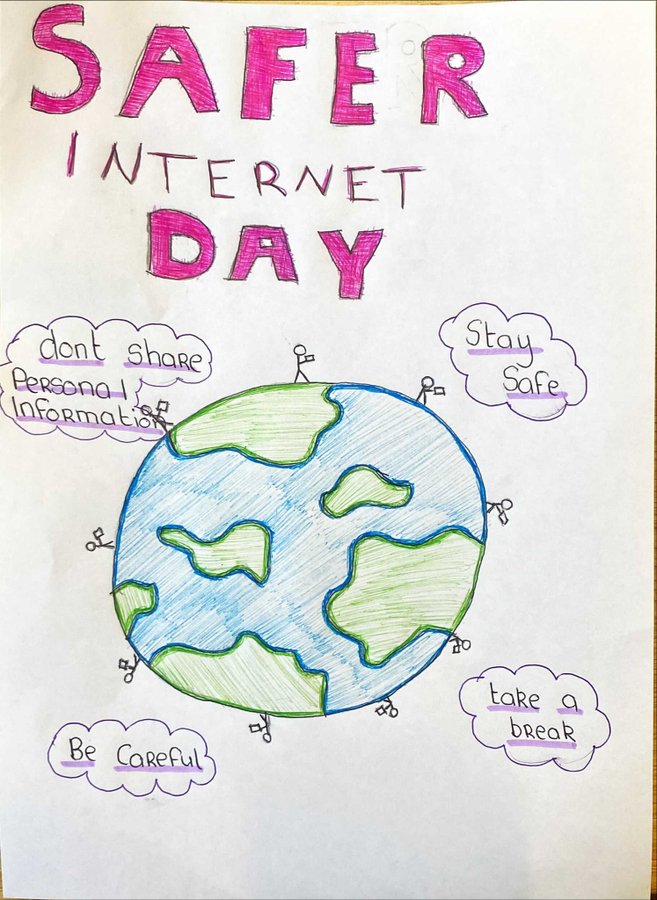 SAFER
INTERNET
DAY
dont share
Personal
Information
Stay
Safe
take a
break
Be Careful